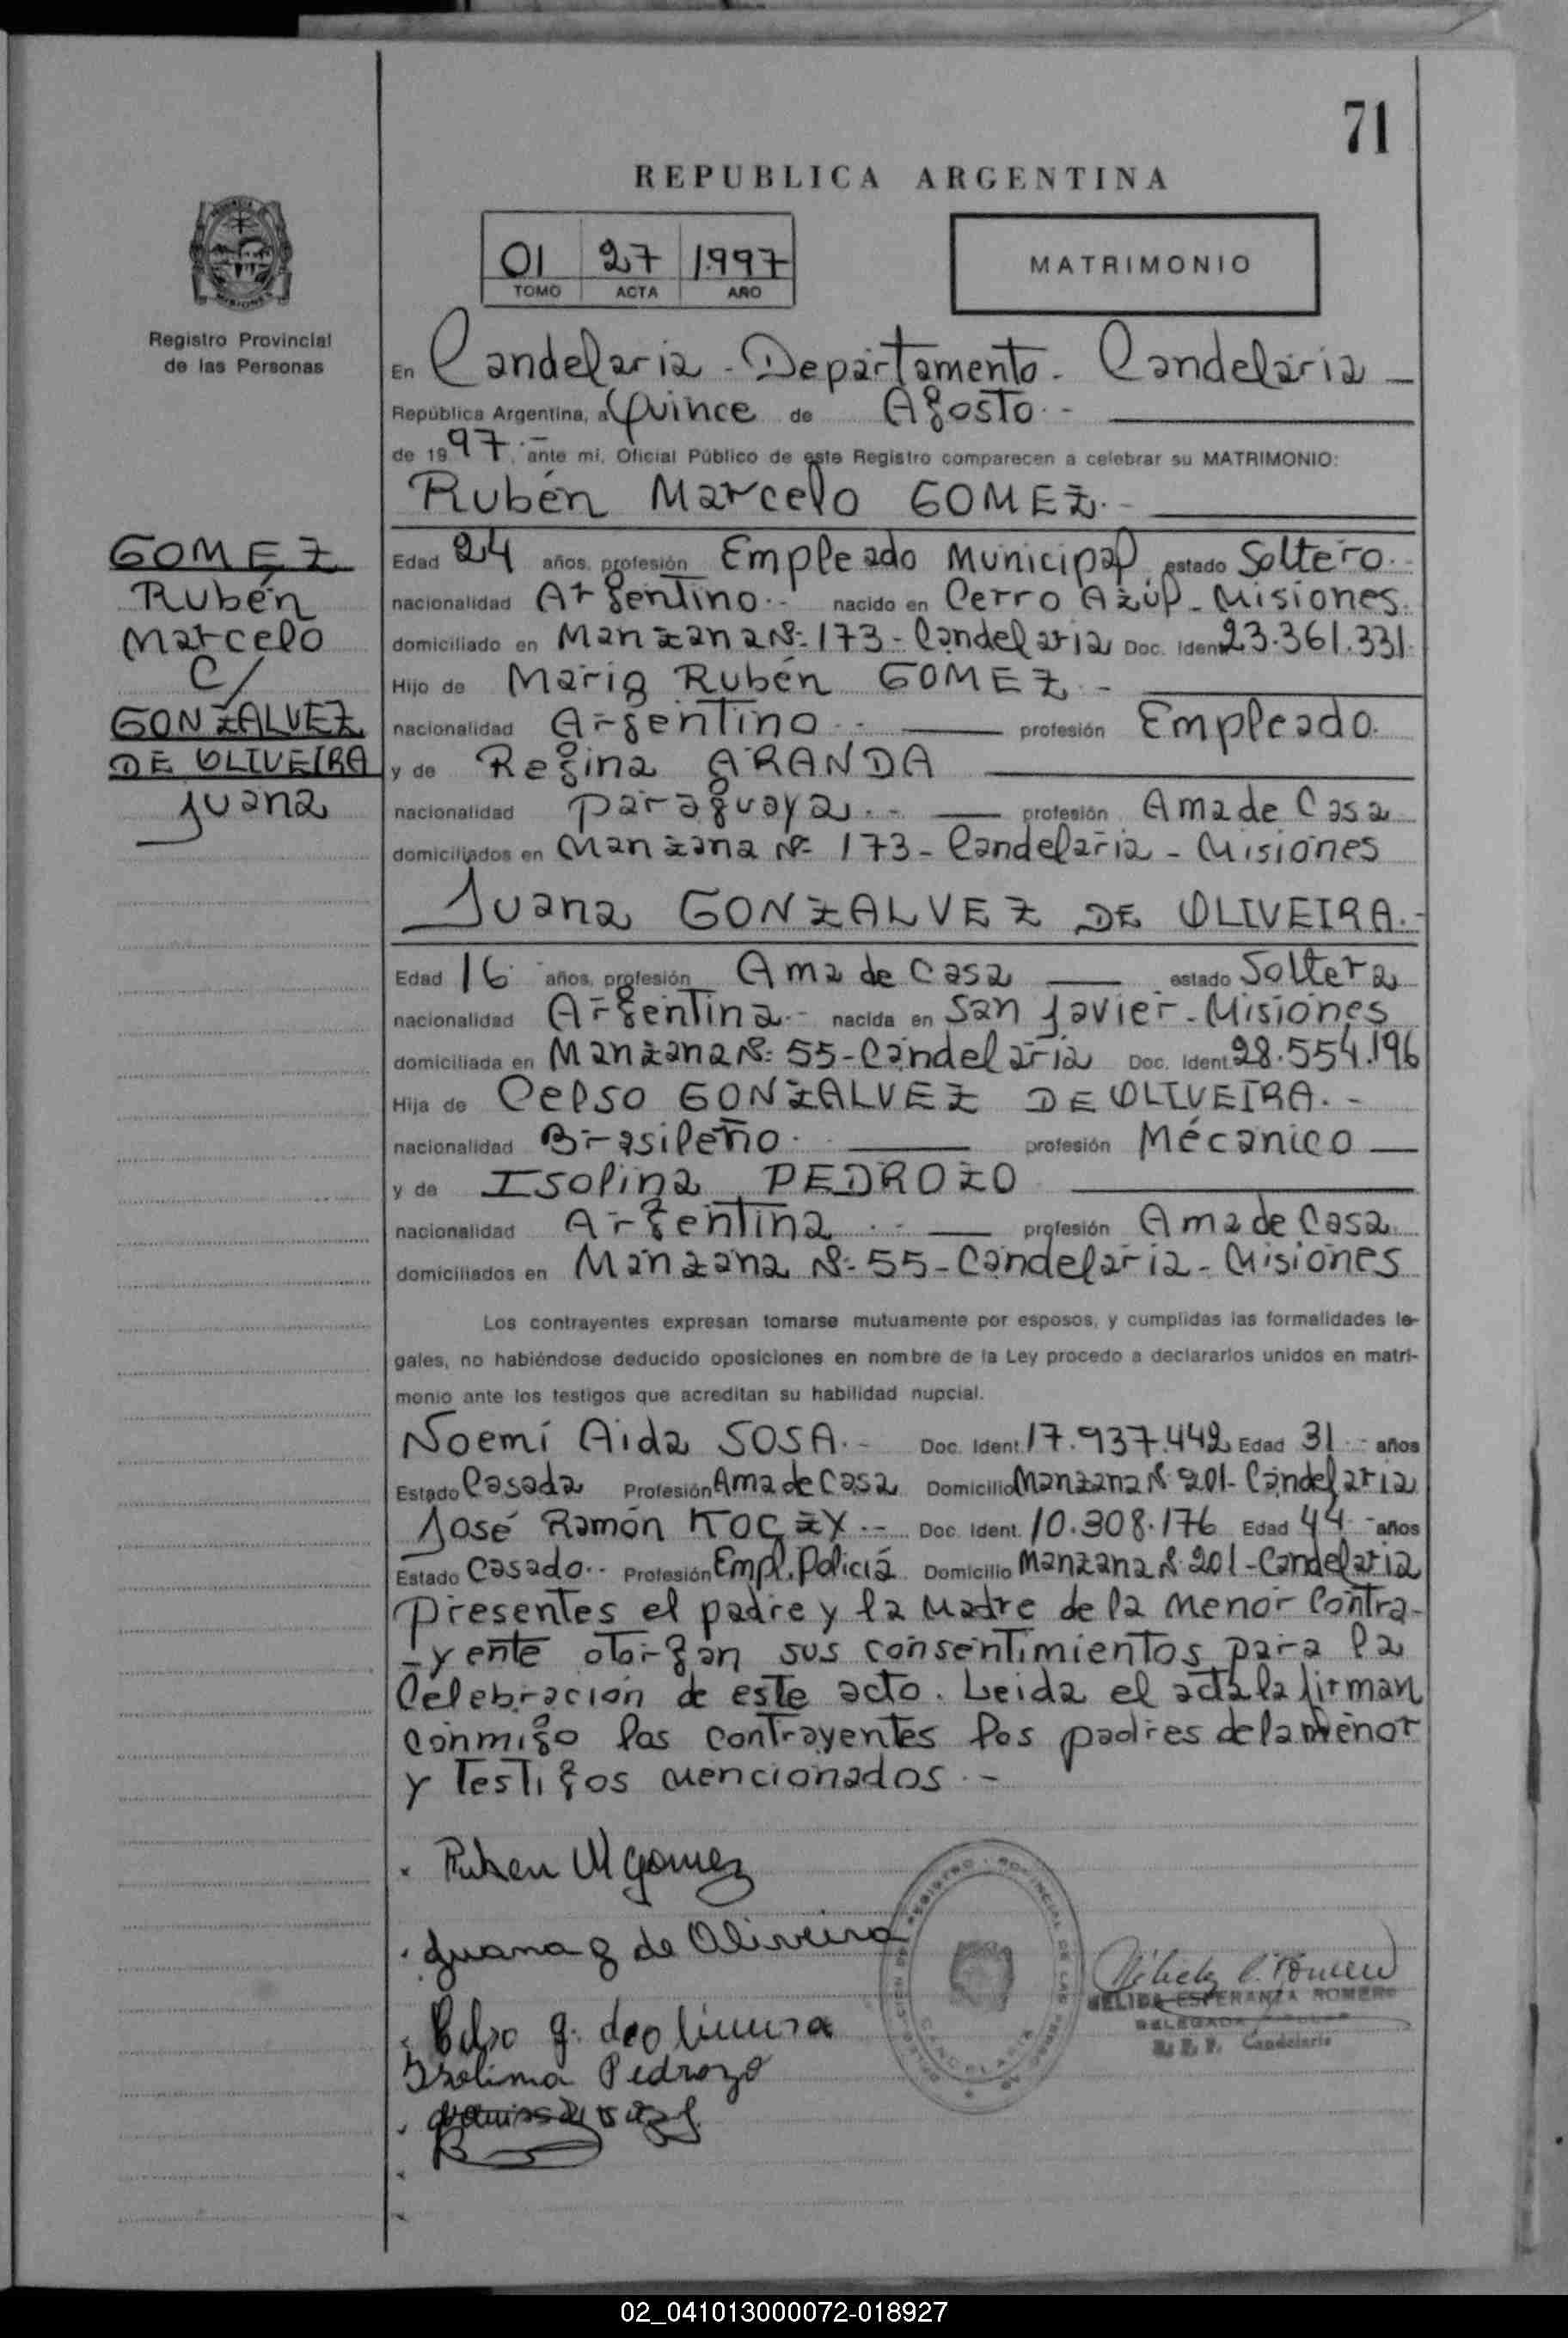 71
REPUBLICA ARGENTINA
01 27 1997
TOMO ACTA AÑO
MATRIMONIO
Registro Provincial
de las Personas
En Candelaria - Departamento - Candelaria -
República Argentina, a Quince de Agosto.-
de 1997.- ante mí, Oficial Público de este Registro comparecen a celebrar su MATRIMONIO:
Rubén Marcelo GOMEZ.-
GOMEZ
Rubén
Marcelo
C/
GONZALVEZ
DE OLIVEIRA
Juana
Edad 24 años, profesión Empleado Municipal estado Soltero.-
nacionalidad Argentino.- nacido en Cerro Azúl - Misiones.
domiciliado en Manzana Nº 173 - Candelaria Doc. Ident. 23.361.331.
Hijo de Mario Rubén GOMEZ.-
nacionalidad Argentino.- profesión Empleado.
y de Regina ARANDA
nacionalidad paraguaya.- profesión Ama de Casa
domiciliados en Manzana Nº 173 - Candelaria - Misiones
Juana GONZALVEZ DE OLIVEIRA.-
Edad 16 años, profesión Ama de Casa estado Soltera
nacionalidad Argentina.- nacida en San Javier - Misiones
domiciliada en Manzana Nº 55 - Candelaria Doc. Ident. 28.554.196
Hija de Celso GONZALVEZ DE OLIVEIRA.-
nacionalidad Brasileño. profesión Mécanico
y de Isolina PEDROZO
nacionalidad Argentina.- profesión Ama de Casa.
domiciliados en Manzana Nº 55 - Candelaria - Misiones
Los contrayentes expresan tomarse mutuamente por esposos, y cumplidas las formalidades le-
gales, no habiéndose deducido oposiciones en nombre de la Ley procedo a declararlos unidos en matri-
monio ante los testigos que acreditan su habilidad nupcial.
Noemí Aida SOSA.- Doc. Ident. 17.937.442 Edad 31 años
Estado Casada Profesión Ama de Casa Domicilio Manzana Nº 201 - Candelaria
José Ramón KOCZY.- Doc. Ident. 10.308.176 Edad 44 años
Estado Casado.- Profesión Empl. Policiá Domicilio Manzana Nº 201 - Candelaria
presentes el padre y la Madre de la menor Contra-
-yente otorgan sus consentimientos para la
Celebración de este acto. Leida el acta la firman
conmigo los contrayentes los padres de la menor
y Testigos mencionados.-
Ruben M Gomez
Juana g de Oliveira
Celso g. deoliveira
Isolima Pedrozo
REGISTRO PROVINCIAL DE LAS PERSONAS
NELIDA ESPERANZA ROMERO
DELEGADA TITULAR
R. P. P. Candelaria
02_041013000072-018927